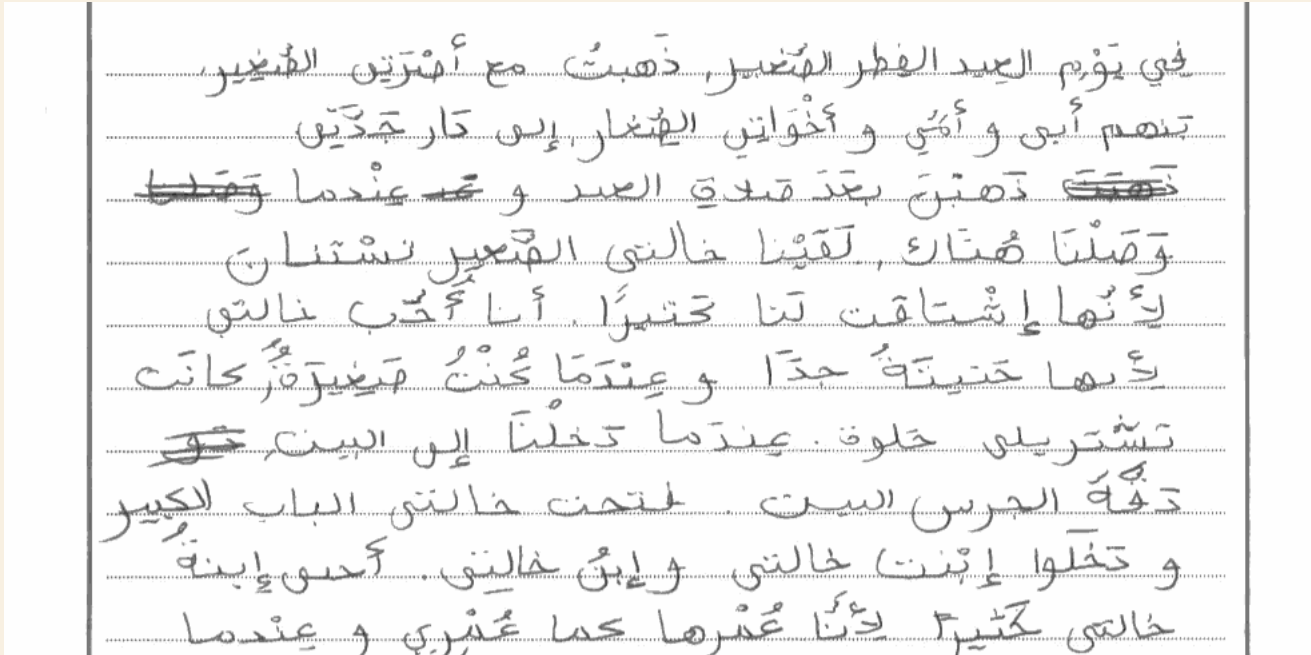 في يَوْم العيد الفِطر الصَّغير, ذَهبتُ مع أُسْرَتِي الصَّغِير,
بَنهم أَبي و أُمِّي و أَخْوَاتِي الصِّغار, إلى دَار جَدَّتِي
ذَهبْنَ بعْدَ صَلاةِ العيد و عِنْدما
وَصَلْنَا هُنَاك, لَقَيْنا خالتي الصَّغير تسْتنانَ
لِأَنَّها إِشْتاقت لَنا كَثيرًا. أنا أُحِّب خالتي
لِأَنها حَنينَةٌ جدًا و عِنْدَمَا كُنْتُ صَغِيرَةٌ كانَت
تَشْتريلي حَلوة. عِندَما دَخلْنَا إلى البيت,
دَقَّةَ الجرس البيت. فتحت خالتي الباب الكبير
و دَخَلوا إبْنت خالتي و إِبنُ خالتِي. أحب إبنةُ
خالتي كَثيرًا لأَنَّ عُمْرها كما عُمْرِي و عِنْدما